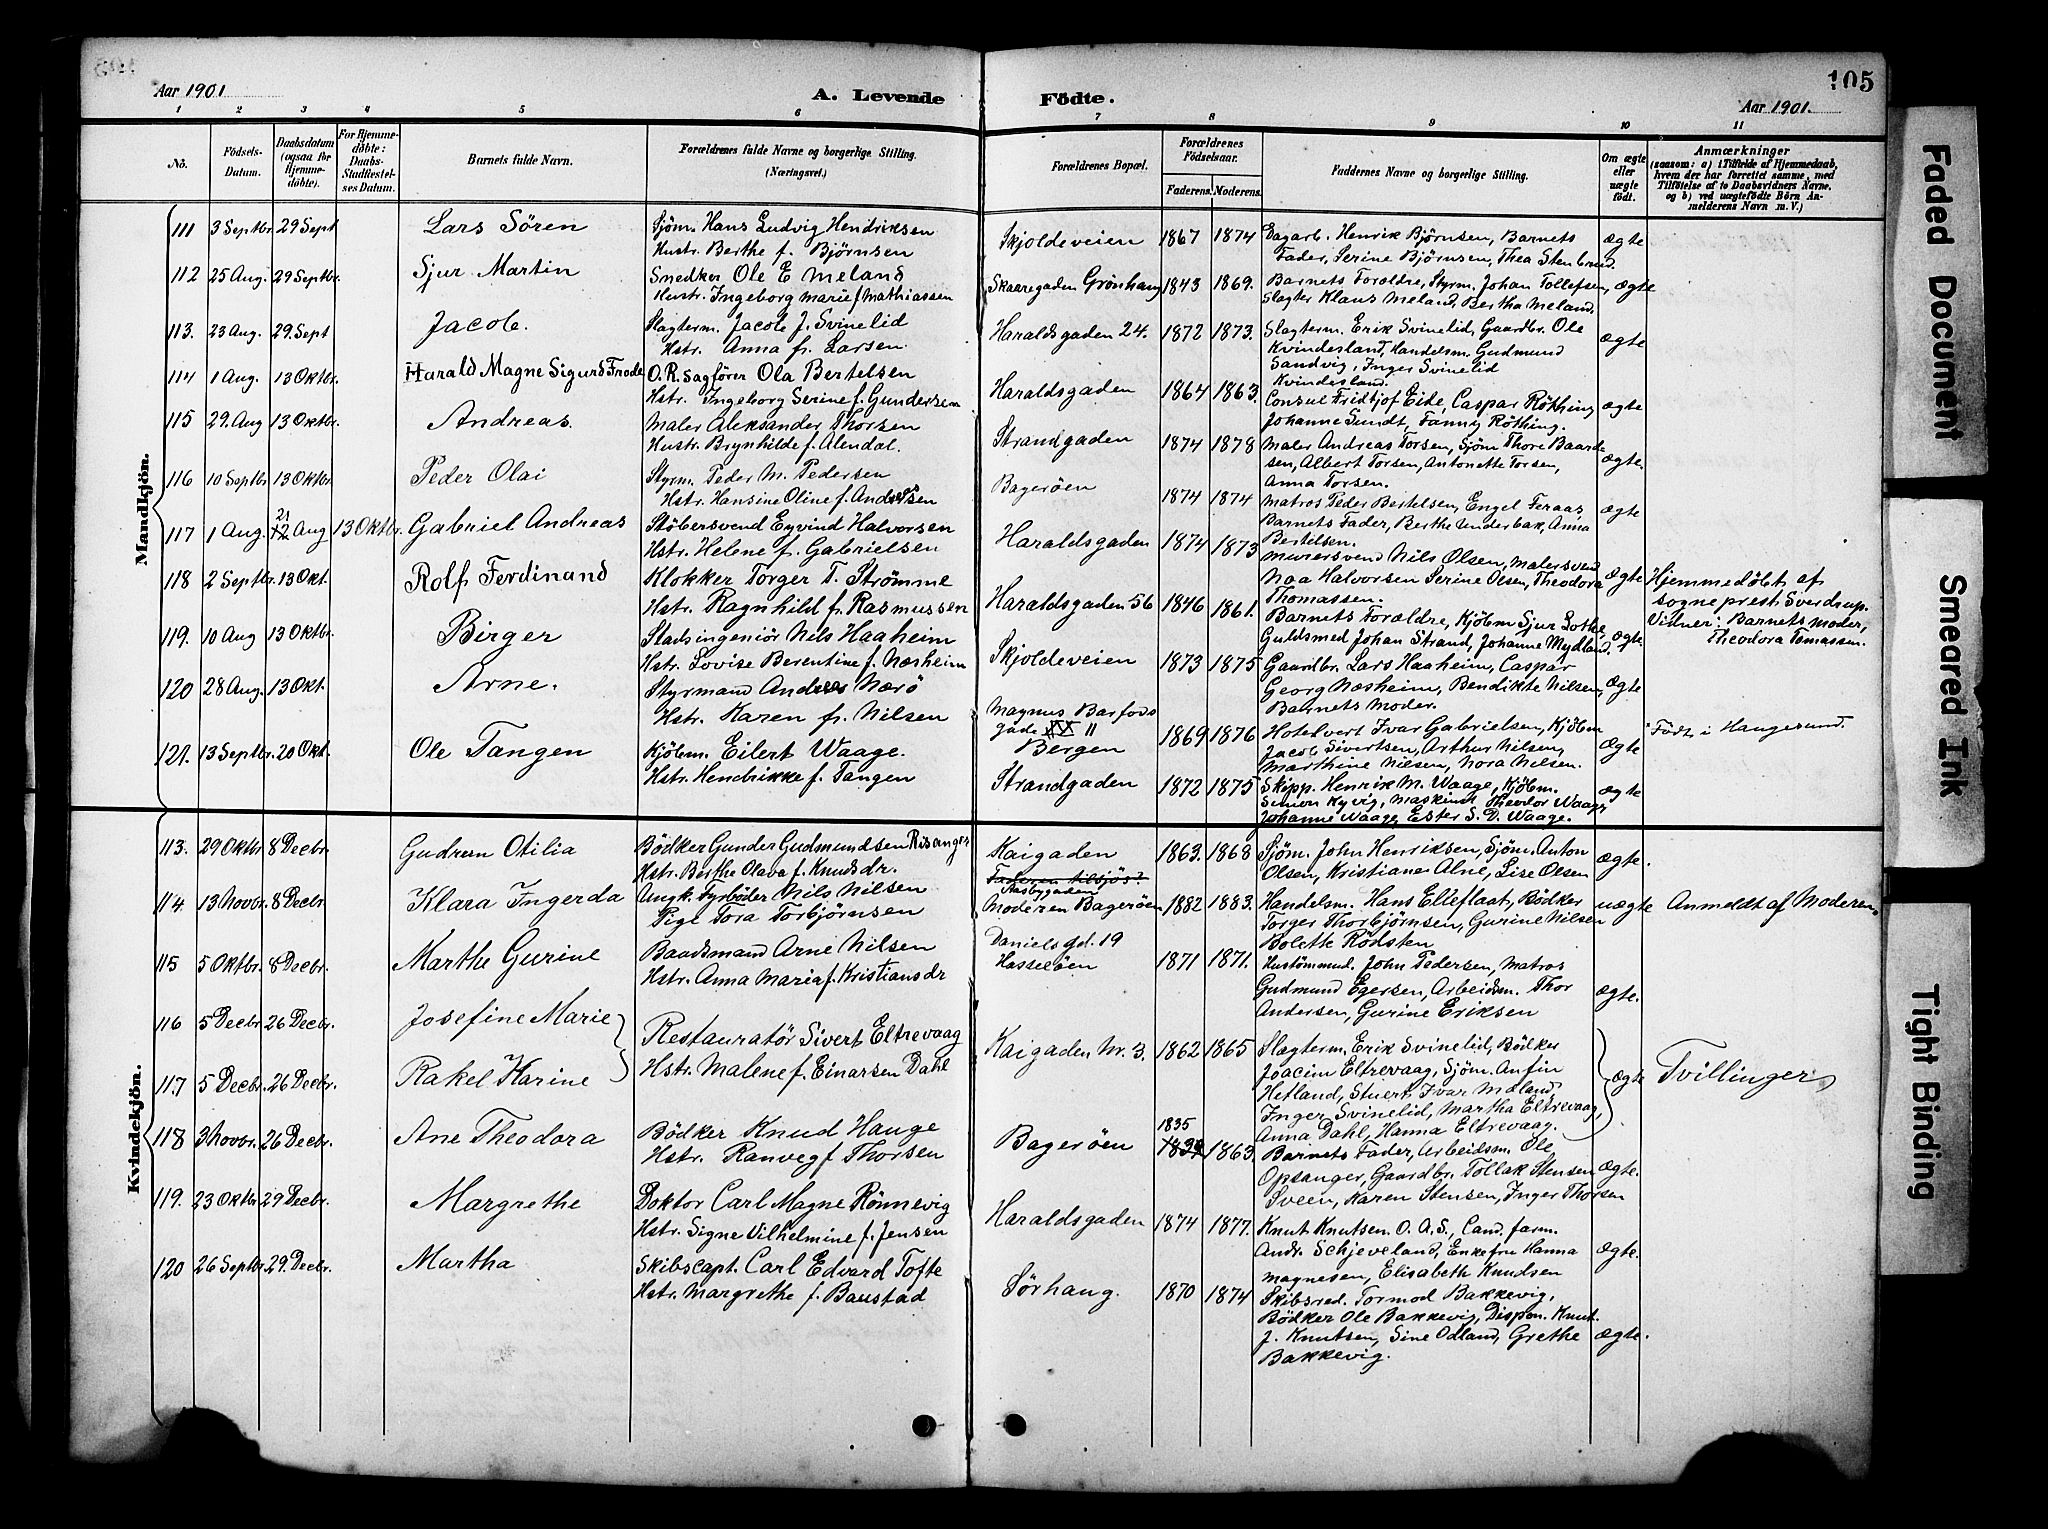 105
Aar 1901
A. Levende
Födte.
Aar 1901.
1 2 3 4 5 6 7 8 9 10 11
No.
Födsels-
Datum.
Daabsdatum
(ogsaa for
Hjemme-
döbte).
For Hjemme-
döbte:
Daabs-
Stadfæstel-
ses Datum.
Barnets fulde Navn.
Forældrenes fulde Navne og borgerlige Stilling.
(Næringsvei.)
Forældrenes Bopæl.
Forældrenes
Födselsaar.
Faderens. Moderens.
Faddernes Navne og borgerlige Stilling.
Om ægte
eller
uægte
født.
Anmærkninger
(saasom: a) i Tilfælde af Hjemmedaab,
hvem der har forrettet samme, med
Tilføielse af to Daabsvidners Navne,
og b) ved uægtefödte Börn An-
melderens Navn m. V.)
Mandkjön.
111 3 Septbr. 29 Sept Lars Sören
Sjöm. Hans Ludvig Hendriksen
Hustr. Berthe f. Bjørnsen
Skjoldeveien 1867 1874
Dagarb. Henrik Bjørnsen, Barnets
Fader, Serine Björnsen, Thea Stenbrud.
ægte
112 25 Aug. 29 Septbr. Sjur Martin
Snedker Ole E Meland
Hustr. Ingeborg Marie f Mathiassen
Skaaregaden Grönhaug 1843 1869.
Barnets Forældre, Styrm. Johan Tollefsen,
Slagter Klaus Meland, Bertha Meland.
ægte
113. 23 Aug. 29. Sept Jacob.
Slagterm. Jacob J. Svinelid
Hstr. Anna fr. Larsen.
Haraldsgaden 24. 1872 1873.
Slagterm. Erik Svinelid, Gaardbr. Ole
Kvindesland, Handelsm. Gudmund
Sandvig, Inger Svinelid
Kvindesland.
ægte
114 1 Aug. 13 Oktbr. Harald Magne Sigurd Frode
O.R. Sagfører Ola Bertelsen
Hstr. Ingeborg Serine f. Gundersen
Haraldsgaden 1864 1863.
Consul Fridtjof Eide, Caspar Röthing
Johanne Sundt, Fanny Röthing.
ægte
115 29. Aug 13 Oktbr. Andreas.
Maler Aleksander Thorsen
Hustr. Brynhilde f. Alendal.
Strandgaden 1874 1878
Maler Andreas Torsen, Sjöm Thore Baard-
sen, Albert Torsen, Antonette Torsen,
Anna Torsen.
ægte.
116 10 Septbr 13 Oktbr. Peder Olai
Styrm. Peder M. Pedersen
Hstr. Hansine Oline f. Andersen
Bagerøen 1874 1874
Matros Peder Bertelsen, Engel Feraas,
Barnets Fader, Berthe Underbak, Anna
Bertelsen.
ægte
117 1 Aug. 21 Aug 13 Oktbr. Gabriel Andreas
Stöbersvend Eyvind Halvorsen
Hstr. Helene f. Gabrielsen
Haraldsgaden 1874 1873
Murersvend Nils Olsen, Malersvend
Noa Halvorsen Serine Olsen, Theodora
Thomassen.
ægte
Hjemmedøbt af
sogneprest Sverdrup.
Vidner: Barnets moder,
Theodora Tomassen.
118 2 Septbr. 13 Okt. Rolf Ferdinand
Klokker Torger T. Strømme
Hstr. Ragnhild fr. Rasmussen
Haraldsgaden 56 1846 1861.
Barnets Forældre, Kjöbm Sjur Lothe,
Guldsmed Johan Strand, Johanne Mydland.
ægte.
119. 10 Aug 13 Oktbr. Birger
Stadsingeniör Nils Haaheim
Hstr. Lovise Berentine f. Næsheim
Skjoldeveien 1873 1875
Gaardbr. Lars Haaheim, Caspar
Georg Næsheim, Bendikte Nilsen,
Barnets Moder.
ægte
120 28 Aug. 13 Okt. Arne.
Styrmand Andreas Nærö
Hstr. Karen fr. Nilsen
Magnus Barfods
gade 11
Bergen 1869 1876
Hotelvert Ivar Gabrielsen, Kjöbm
Jacob Sivertsen, Arthur Nilsen,
Marthine Nilsen, Nora Nilsen.
ægte
Födt i Haugesund.
121. 13 Septbr. 20 Okt. Ole Tangen
Kjöbm. Eilert Waage.
Hstr. Hendrikke f. Tangen
Strandgaden 1872 1875
Skipp. Henrik M. Waage, Kjöbm.
Simon Kyvig, Maskinist Theodor Waage,
Johanne Waage, Ester S. D. Waage.
ægte
Kvindekjön.
113. 29 Oktbr 8 Decbr. Gudrun Otilia
Bödker Gunder Gudmundsen Risanger
Hstr. Berthe Olava f. Knudsdr.
Kaigaden 1863. 1868
Sjöm. John Henriksen, Sjöm. Anton
Olsen, Kristiane Alne, Lise Olsen
ægte.
114. 13 Novbr. 8 Decbr Klara Ingerda
Ungk. Fyrbøder Nils Nilsen
Pige Tora Torbjørnsen
Faderen tilsjøs?
Aasbygaden
Moderen Bagerøen 1882 1883.
Handelsm. Hans Elleflaat, Bödker
Torger Thorbjørnsen, Gurine Nilsen
Bolette Rödsten
uægte Anmeldt af Moderen.
115 5 Oktbr. 8 Decbr. Marthe Gurine
Baadsmand Arne Nilsen
Hstr. Anna Maria f. Kristiansdr
Daniels gd. 19
Hasseløen 1871 1871.
Hustömmed. John Pedersen, Matros
Gudmund Egersen, Arbeidsm. Thor
Andersen, Gurine Eriksen
ægte.
116 5 Decbr. 26 Decbr. Josefine Marie
117. 5 Decbr. 26 Decbr. Rakel Karine
Restauratør Sivert Eltrevaag
Hstr. Malene f. Einarsen Dahl
Kaigaden Nr. 3. 1862 1865
Slagterm. Erik Svinelid, Bödker
Joacim Eltrevaag, Sjöm. Anfin
Hetland, Stuert Ivar Meland,
Inger Svinelid, Martha Eltrevaag,
Anna Dahl, Hanna Eltrevaag.
ægte Tvillinger
118 3 Novbr. 26 Decbr. Ane Theodora
Bödker Knud Hauge
Hstr. Ranveg f Thorsen
Bagerøen 1835 1863.
Barnets Fader, Arbeidsm. Ole
Opsanger, Gaardbr. Tollak Stensen
Sveen, Karen Stensen, Inger Thorsen
ægte.
119. 23 Oktbr 29 Decbr. Margrethe
Doktor Carl Magne Rönnevig
Hstr. Signe Vilhelmine f. Jensen
Haraldsgaden 1874 1877.
Knut Knutsen. O. A. S., Cand. farm.
Andr. Schjeveland, Enkefru Hanna
Magnesen, Elisabeth Knudsen
ægte.
120 26 Septbr. 29. Decbr. Martha
Skibscapt. Carl Edvard Tofte
Hstr. Margrethe f. Baustad
Sørhaug. 1870 1874
Skibsred. Tormod Bakkevig,
Bödker Ole Bakkevig, Dispon. Knut
J. Knutsen, Sine Odland, Grethe
Bakkevig.
ægte.
Faded Document
Smeared Ink
Tight Binding